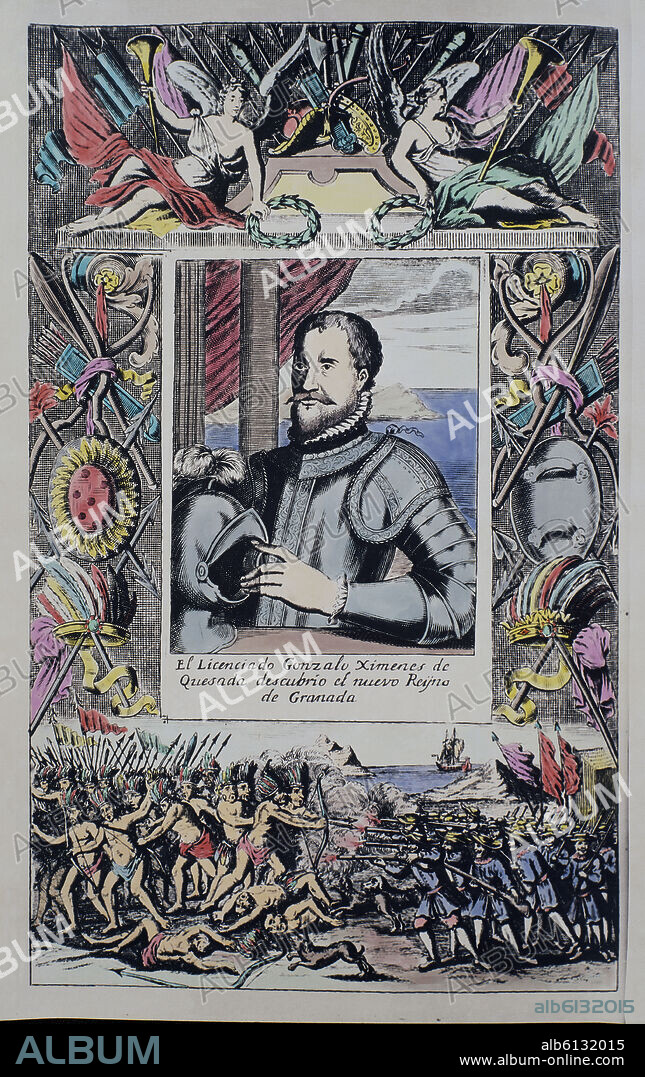 El Licenciado Gonzalo Ximenes de
Quesada descubrio el nuevo Reÿno
de Granada
alb6132015
ALBUM
alb6132015
www.album-online.com